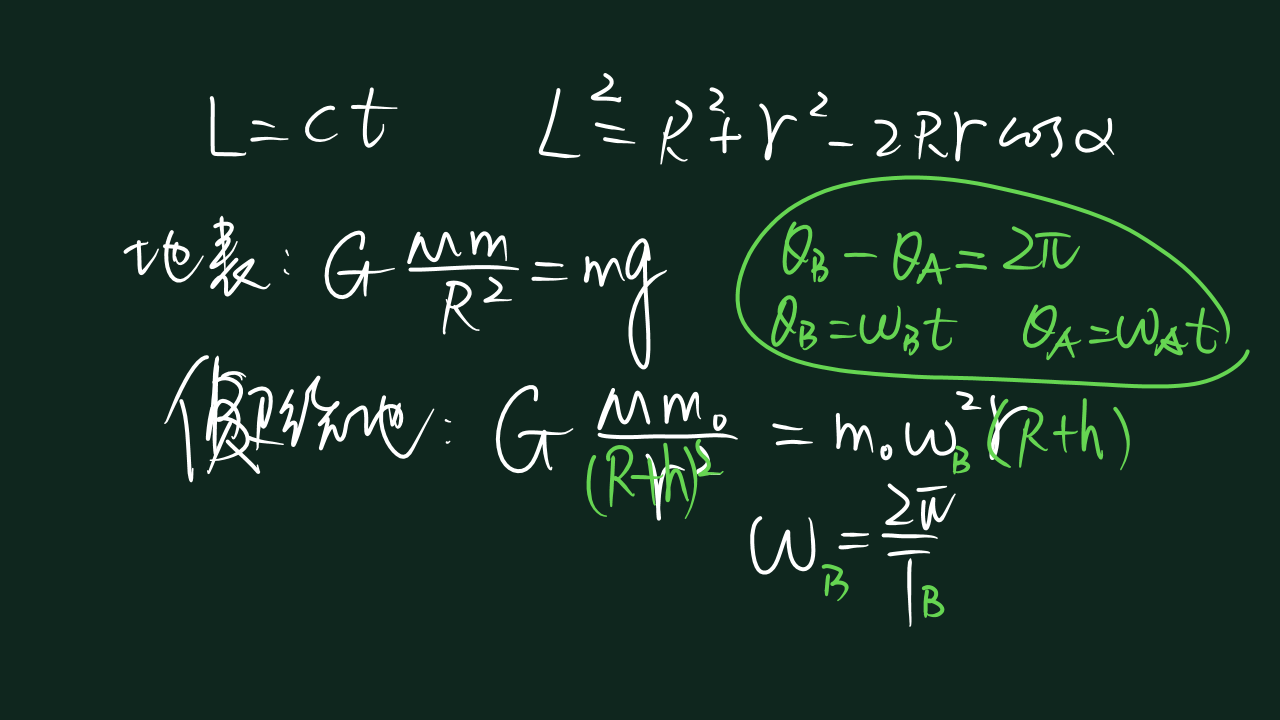 L=ct L²=R²+r²-2Rr cosα
地表: G Mm/R² = mg
θ_B-θ_A=2π
θ_B=ω_B t θ_A=ω_A t
绕地: G Mm₀/(R+h)² = m₀ω_B²(R+h)
ω_B=2π/T_B